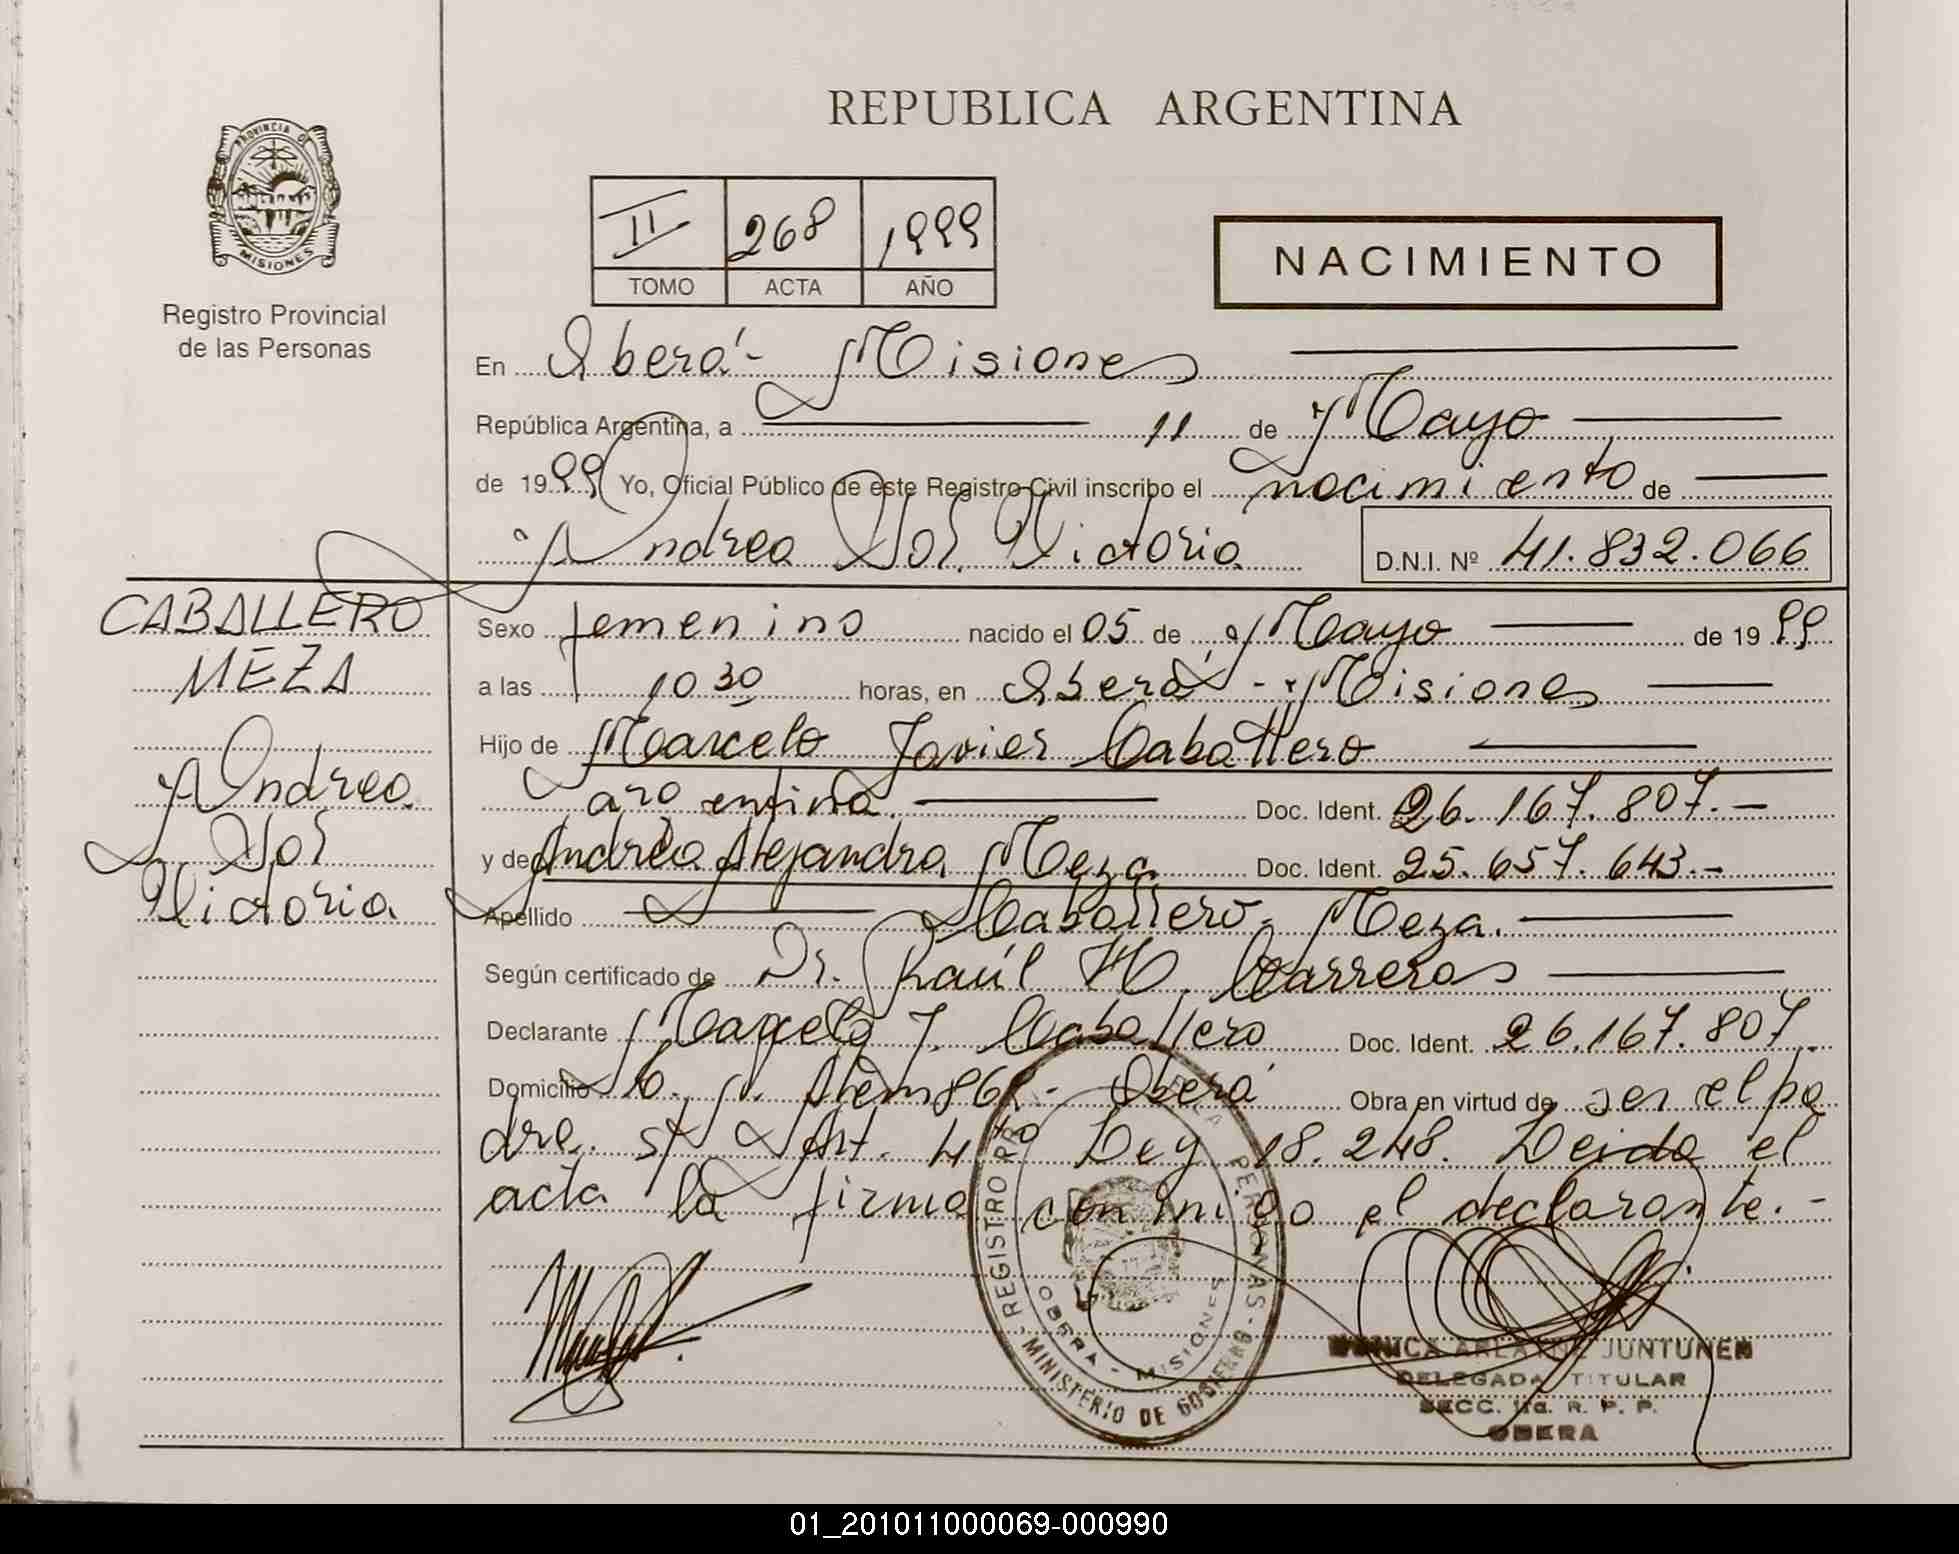 REPUBLICA ARGENTINA
PROVINCIA DE
MISIONES
Registro Provincial
de las Personas
II 268 1999
TOMO ACTA AÑO
NACIMIENTO
En Oberá - Misiones
República Argentina, a 11 de Mayo
de 1999 Yo, Oficial Público de este Registro Civil inscribo el nacimiento de
Andrea Sol Victoria D.N.I. Nº 41.832.066
CABALLERO
MEZA
Andrea
Sol
Victoria
Sexo femenino nacido el 05 de Mayo de 1999
a las 10 30 horas, en Oberá - Misiones
Hijo de Marcelo Javier Caballero
argentina Doc. Ident. 26.167.807.-
y de Andrea Alejandra Meza Doc. Ident. 25.657.643.-
Apellido Caballero Meza.
Según certificado de Dr. Raúl H. Carreras
Declarante Marcelo J. Caballero Doc. Ident. 26.167.807
Domicilio Alem - Oberá Obra en virtud de ser el pa
dre. s/ Art. 4to Ley 18.248. Leida el
acta la firma conmigo el declarante.-
REGISTRO PERSONAS - MINISTERIO DE GOBIERNO -
OBERA - MISIONES
MONICA ARLAINE JUNTUNEN
DELEGADA TITULAR
SECC. 1ra. R. P. P.
OBERA
01_201011000069-000990